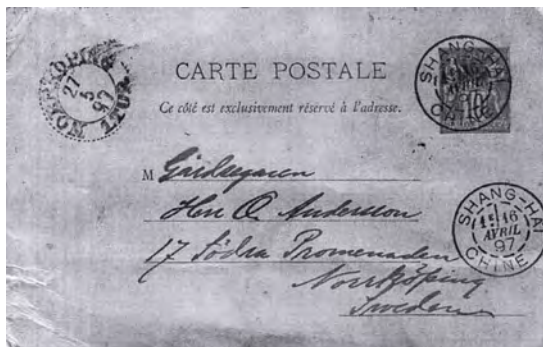 NORRKÖPING
27
5
97
1 TUR
CARTE POSTALE
Ce côté est exclusivement réservé à l'adresse.
SHANG-HAI
AVRIL
CHINE
10
M Gårdsegaren
Herr O. Andersson
17 Södra Promenaden
Norrköping
Sweden
SHANG-HAI
16
AVRIL
97
CHINE